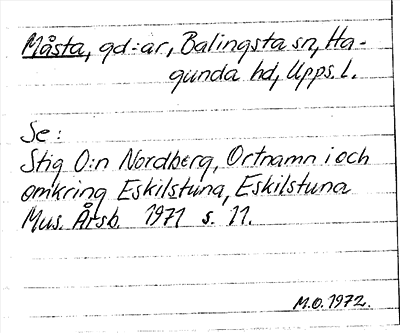 Måsta, gd:ar, Balingsta sn, Ha-
gunda hd, Upps. l.
Se:
Stig O:n Nordberg, Ortnamn i och
omkring Eskilstuna, Eskilstuna
Mus. Årsb. 1971 s. 11.
M.O. 1972.